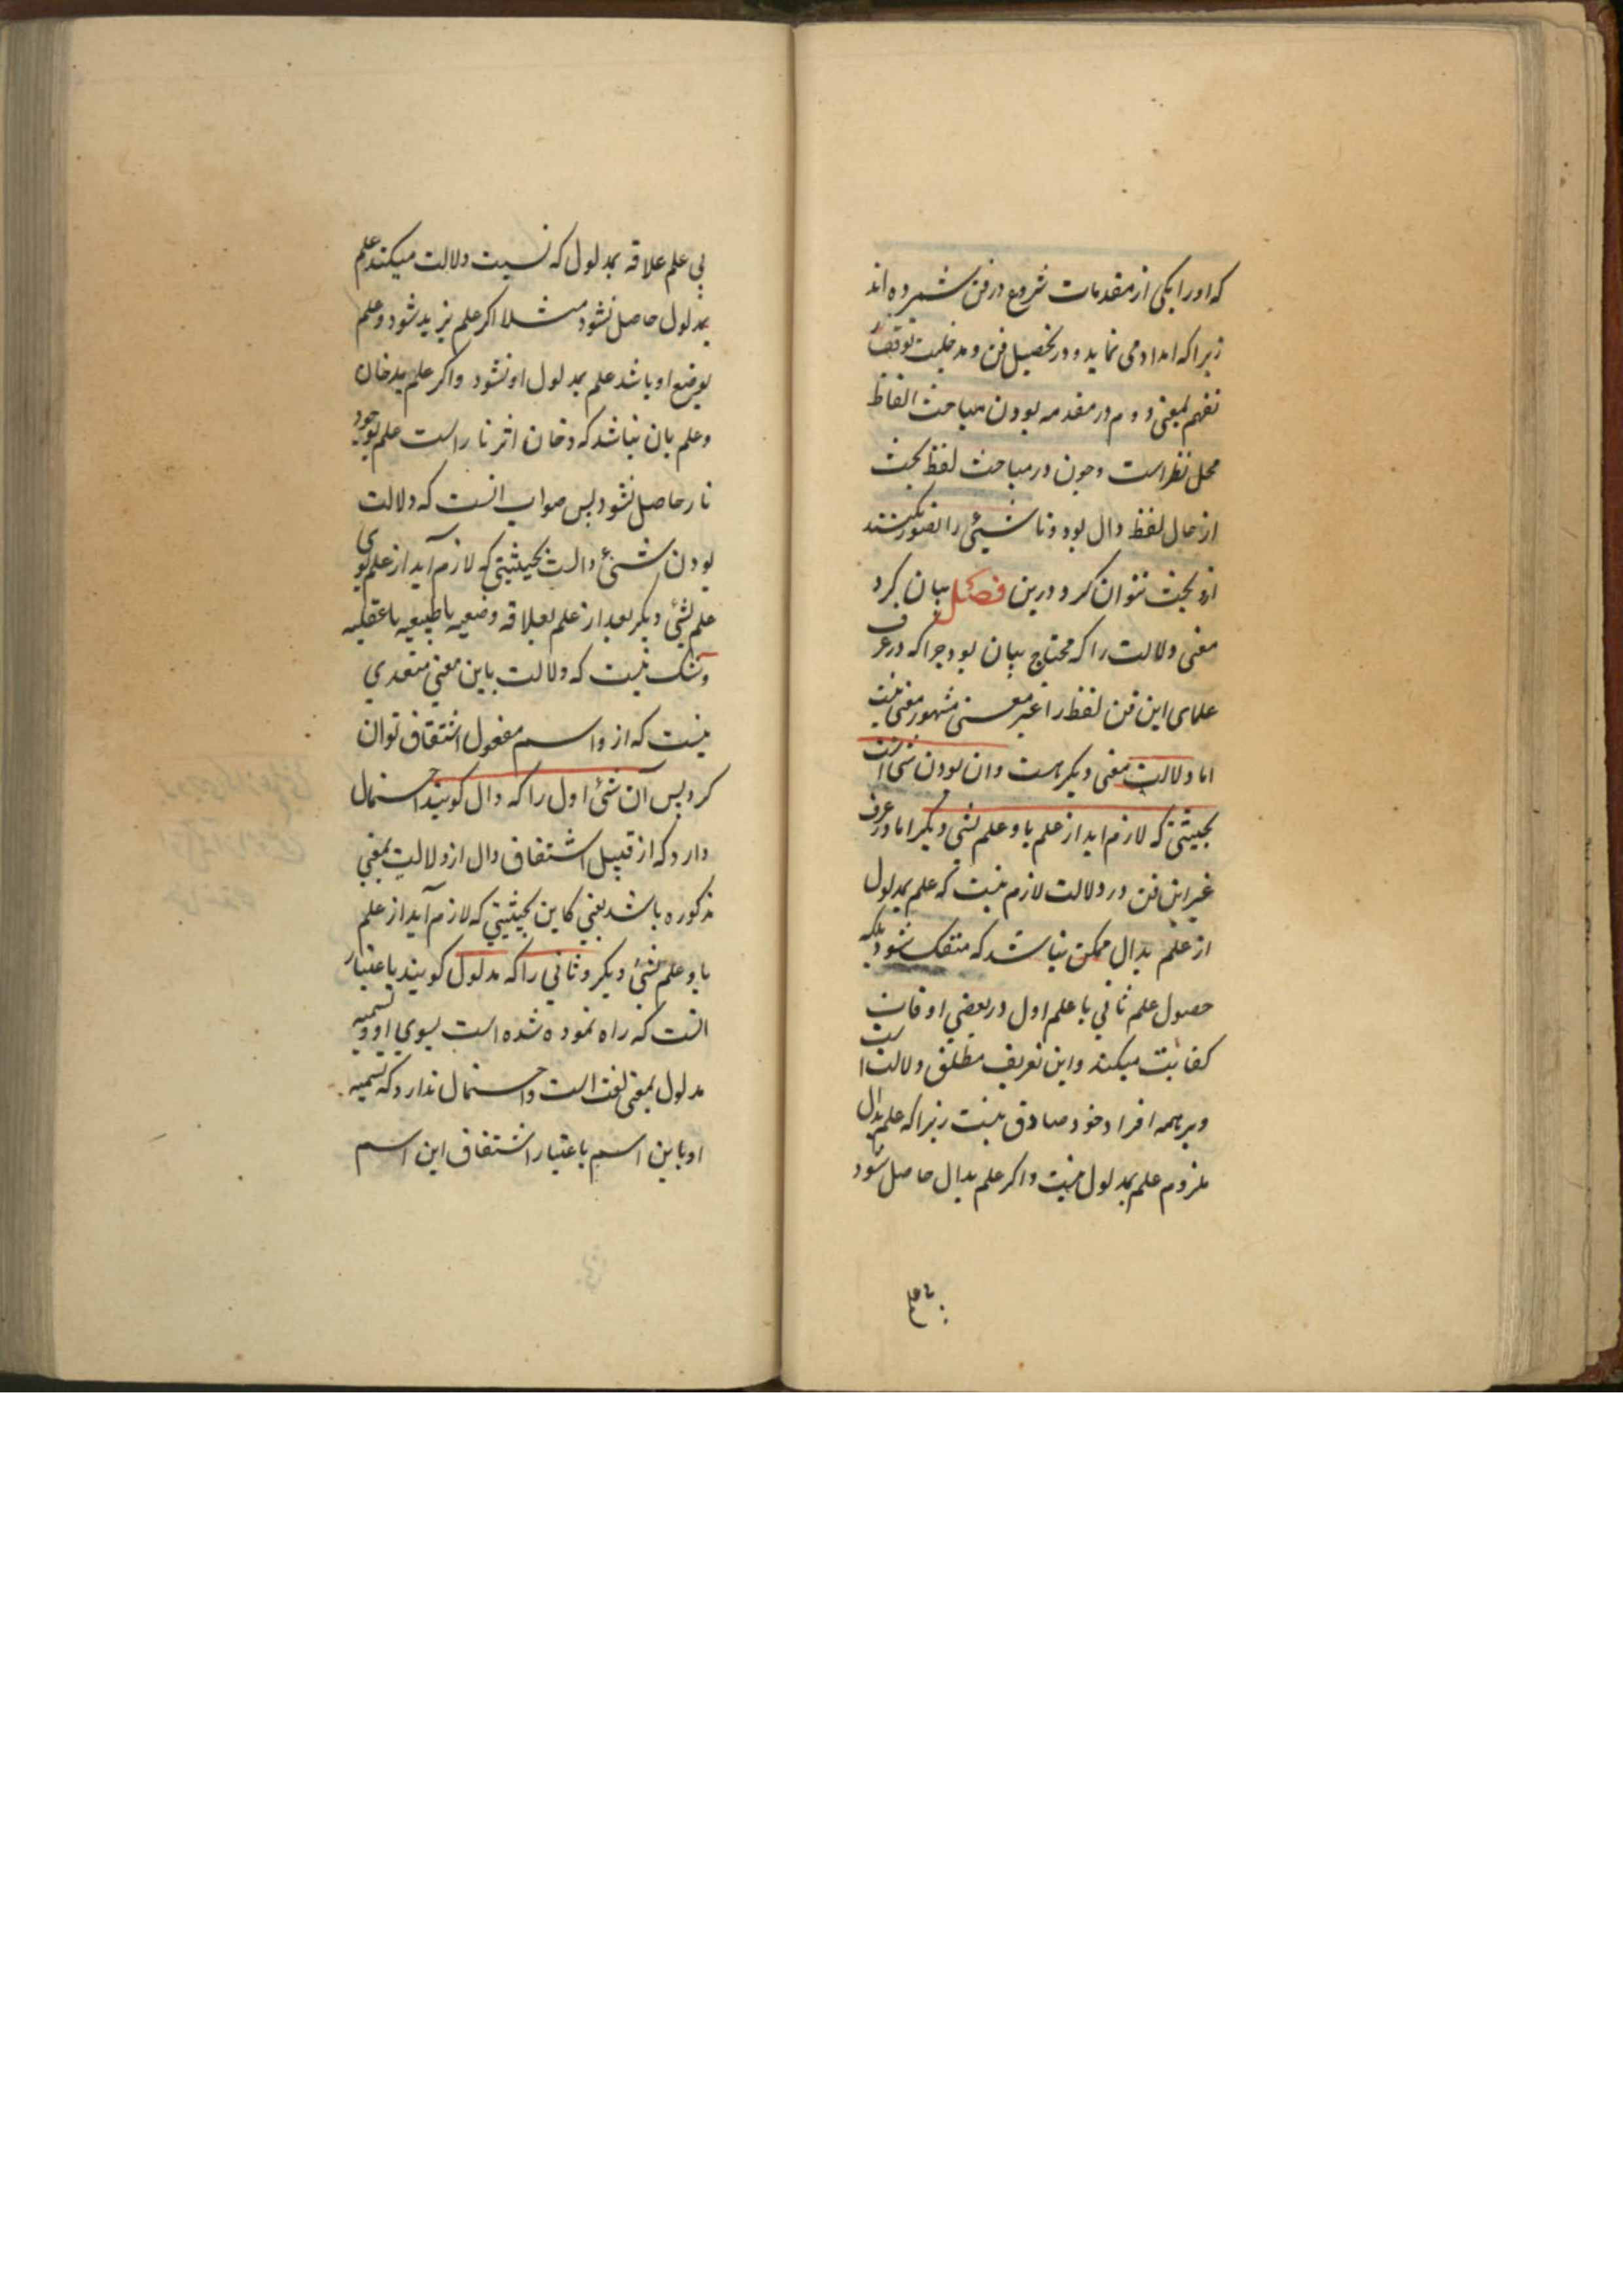 که اورا یکی از مقدمات شروع در فن شمرده اند
زیرا که امداد می نماید و در تحصیل فن و مدخلیت توقف
تفهم بمعنی دوم در مقدمه بودن مباحث الفاظ
محل نظر است و چون در مباحث لفظ بحث
از حال لفظ دال بود و تا شیئی را تصور نکنند
ازو بحث نتوان کرد درین فصل بیان کرد
معنی دلالت را که محتاج ببیان بود چرا که در عرف
علمای این فن لفظ را غیر معنی مشهور معنی نیست
اما دلالت معنی دیگر هست و ان بودن شی است
بحیثتی که لازم اید از علم باو علم بشی دیگر اما در عرف
غیر این فن در دلالت لازم نیست که علم بمدلول
از علم بدال ممکن نباشد که منفک شود بلکه
حصول علم ثانی با علم اول در بعضی اوقات
کفایت میکند و این تعریف مطلق دلالت است
و بر همه افراد خود صادق نیست زیرا که علم بدال
ملزوم علم بمدلول نیست و اگر علم بدال حاصل شود
بی علم علاقه بمدلول که نسبت دلالت میکند علم
بمدلول حاصل نشود مثلا اگر علم بزید شود و علم
بوضع او باشد علم بمدلول او نشود و اگر علم بدخان
و علم بان نباشد که دخان اثر نار است علم بوجود
نار حاصل نشود پس صواب انست که دلالت
بودن شیئ دالست بحیثیتی که لازم آید از علم بوی
علم بشئ دیگر بعد از علم بعلاقه وضعیه یا طبیعیه یا عقلیه
و شک نیست که دلالت باین معنی متعدی
نیست که از و اسم مفعول اشتقاق توان
کرد پس آن شئ اول را که دال گویند احتمال
دارد که از قبیل اشتقاق دال از دلالت بمعنی
مذکوره باشد یعنی کاین بحیثیتی که لازم آید از علم
باو علم بشئ دیگر و ثانی را که مدلول گویند باعتبار
انست که راه نموده شده است بسوی او و تسمیه
مدلول بمعنی لغت است و احتمال ندارد که تسمیه
او باین اسم باعتبار اشتقاق این اسم